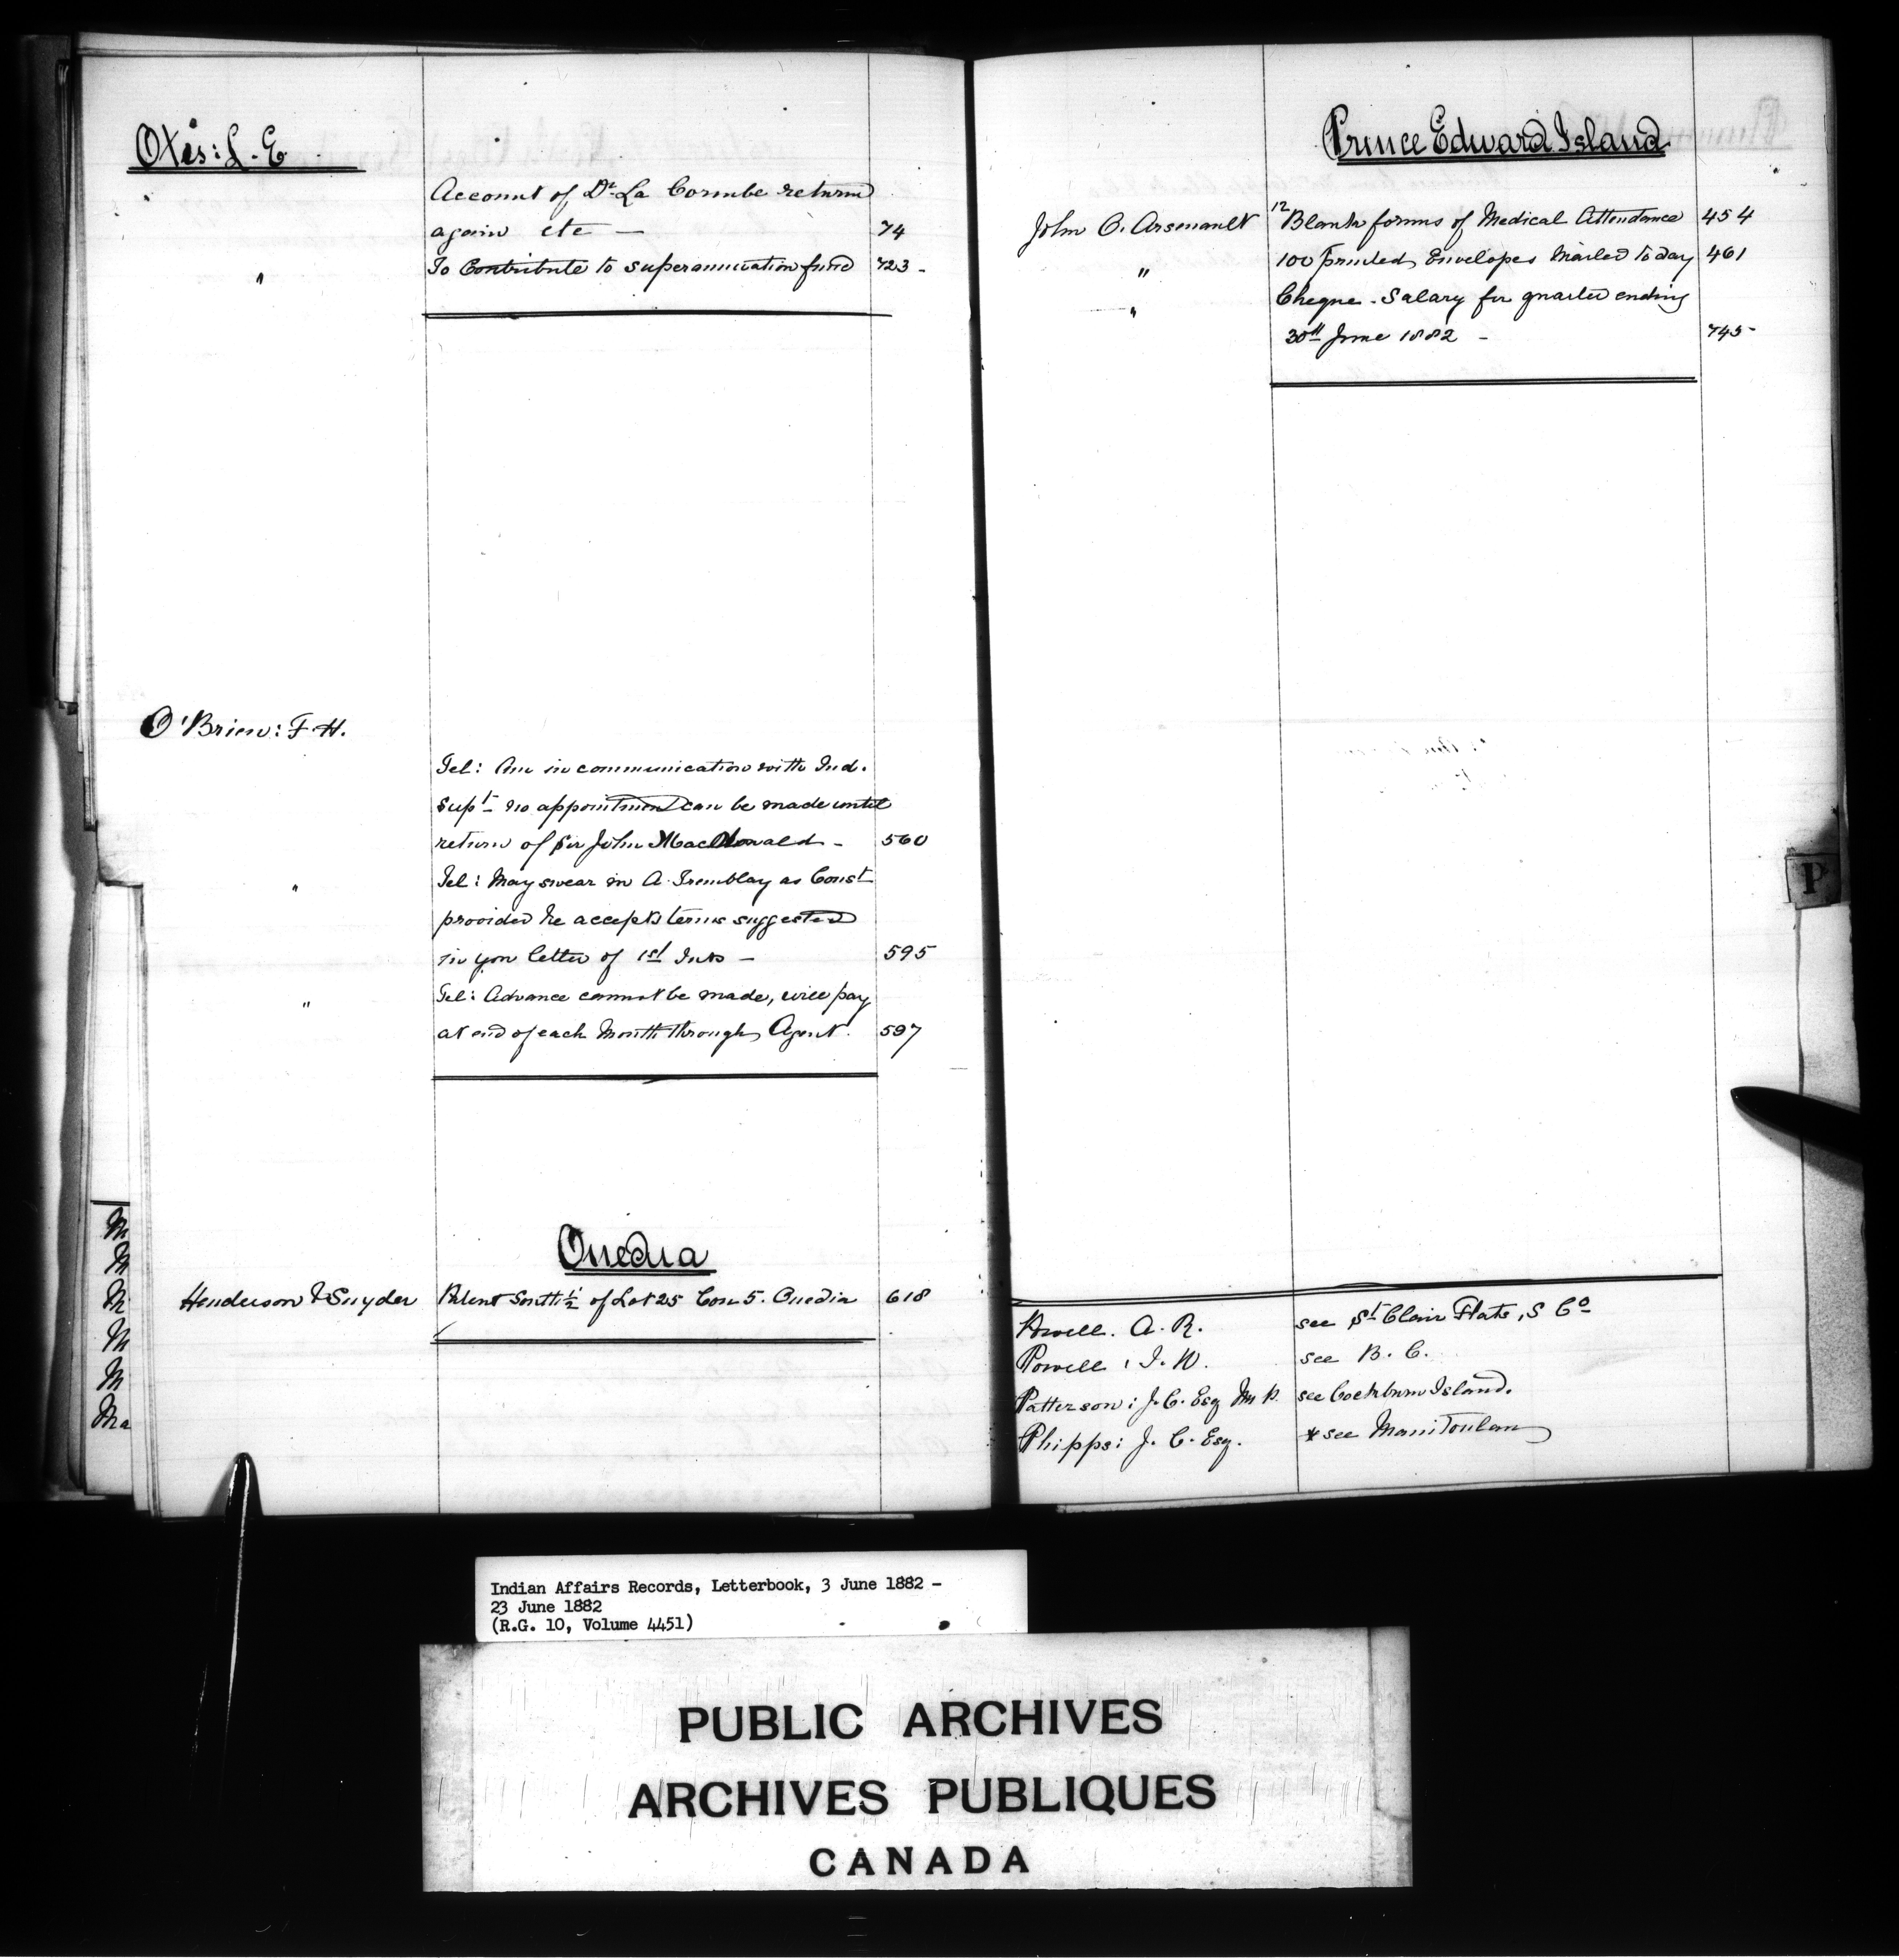 Otis: L. E
Account of Dr. La Combe return
again etc — 74
" To Contribute to superannuation fund 723 -
O'Brien: F. H.
Tel: Am in communication with Ind.
Supt. no appointment can be made until
return of Sir John MacDonald - 560
" Tel: May swear in A. Tremblay as Const
provided he accepts terms suggested
in your letter of 1st Inst — 595
" Tel: Advance cannot be made, will pay
at end of each Month through Agent. 597
Onedia
Henderson & Snyder Patent South ½ of Lot 25 Con 5. Onedia 618
M
M
M
M
M
Ma
Prince Edward Island
John O. Arsenault 12 Blank forms of Medical Attendance 454
" 100 printed Envelopes Mailed to day 461
" Cheque - Salary for quarter ending
30th June 1882 - 745
P
Powell. A. R. see St Clair Flats, S Co
Powell: I. W. see B. C.
Patterson: J. C. Esq M P. see Cockburn Island.
Phipps: J. C. Esq. * see Manitoulan
Indian Affairs Records, Letterbook, 3 June 1882 -
23 June 1882
(R.G. 10, Volume 4451)
PUBLIC ARCHIVES
ARCHIVES PUBLIQUES
CANADA